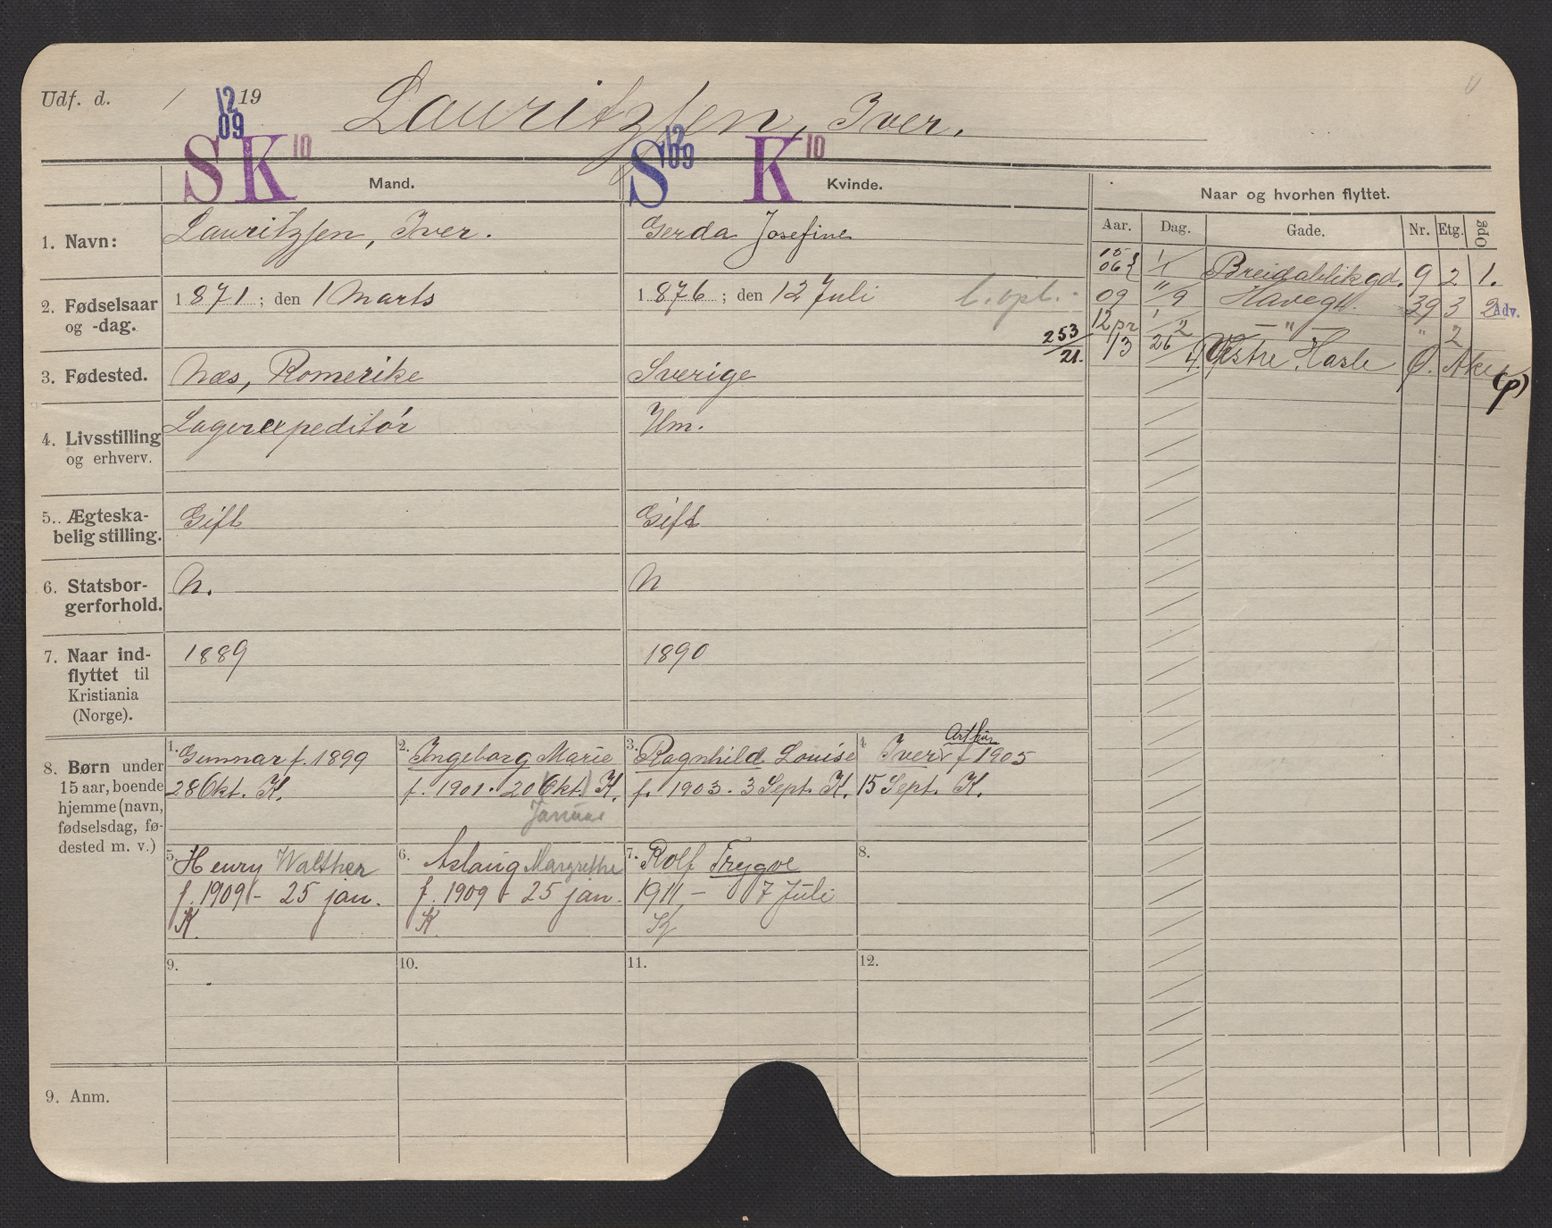 Udf. d. 1 19 Lauritzsen, Iver.
12 09 S K 10
12 09 S K 10
Mand. Kvinde. Naar og hvorhen flyttet.
Aar. Dag. Gade. Nr. Etg. Opg
1. Navn: Lauritzsen, Iver. Gerda Josefine
2. Fødselsaar og -dag. 1871; den 1 Marts 1876; den 12 Juli
3. Fødested. Næs, Romerike Sverige
4. Livsstilling og erhverv. Lagerexpeditør Hm.
5. Ægteskabelig stilling. Gift Gift
6. Statsborgerforhold. N. N
7. Naar indflyttet til Kristiania (Norge). 1889 1890
06 1/1 Breidablikgd. 9 2 1.
09 "/9 Havegd. 39 3 2 Adv.
12 pr 1/2 – " – " 2
253/21. 13 26/4 Østre Hasle Ø. Aker (p)
8. Børn under
15 aar, boende
hjemme (navn,
fødselsdag, fø-
dested m. v.)
1. Gunnar f. 1899
28 Okt. K.
2. Ingeborg Marie
f. 1901. 20 (Okt.) K.
Januar
3. Ragnhild Louise
f. 1903. 3 Sept. K.
4. Iver Arthur f 1905
15 Sept. K.
5. Henry Walther
f. 1909 - 25 jan.
K.
6. Aslaug Margrethe
f. 1909 - 25 jan.
K.
7. Rolf Trygve
1911, - 7 Juli
K
8.
9. 10. 11. 12.
9. Anm.